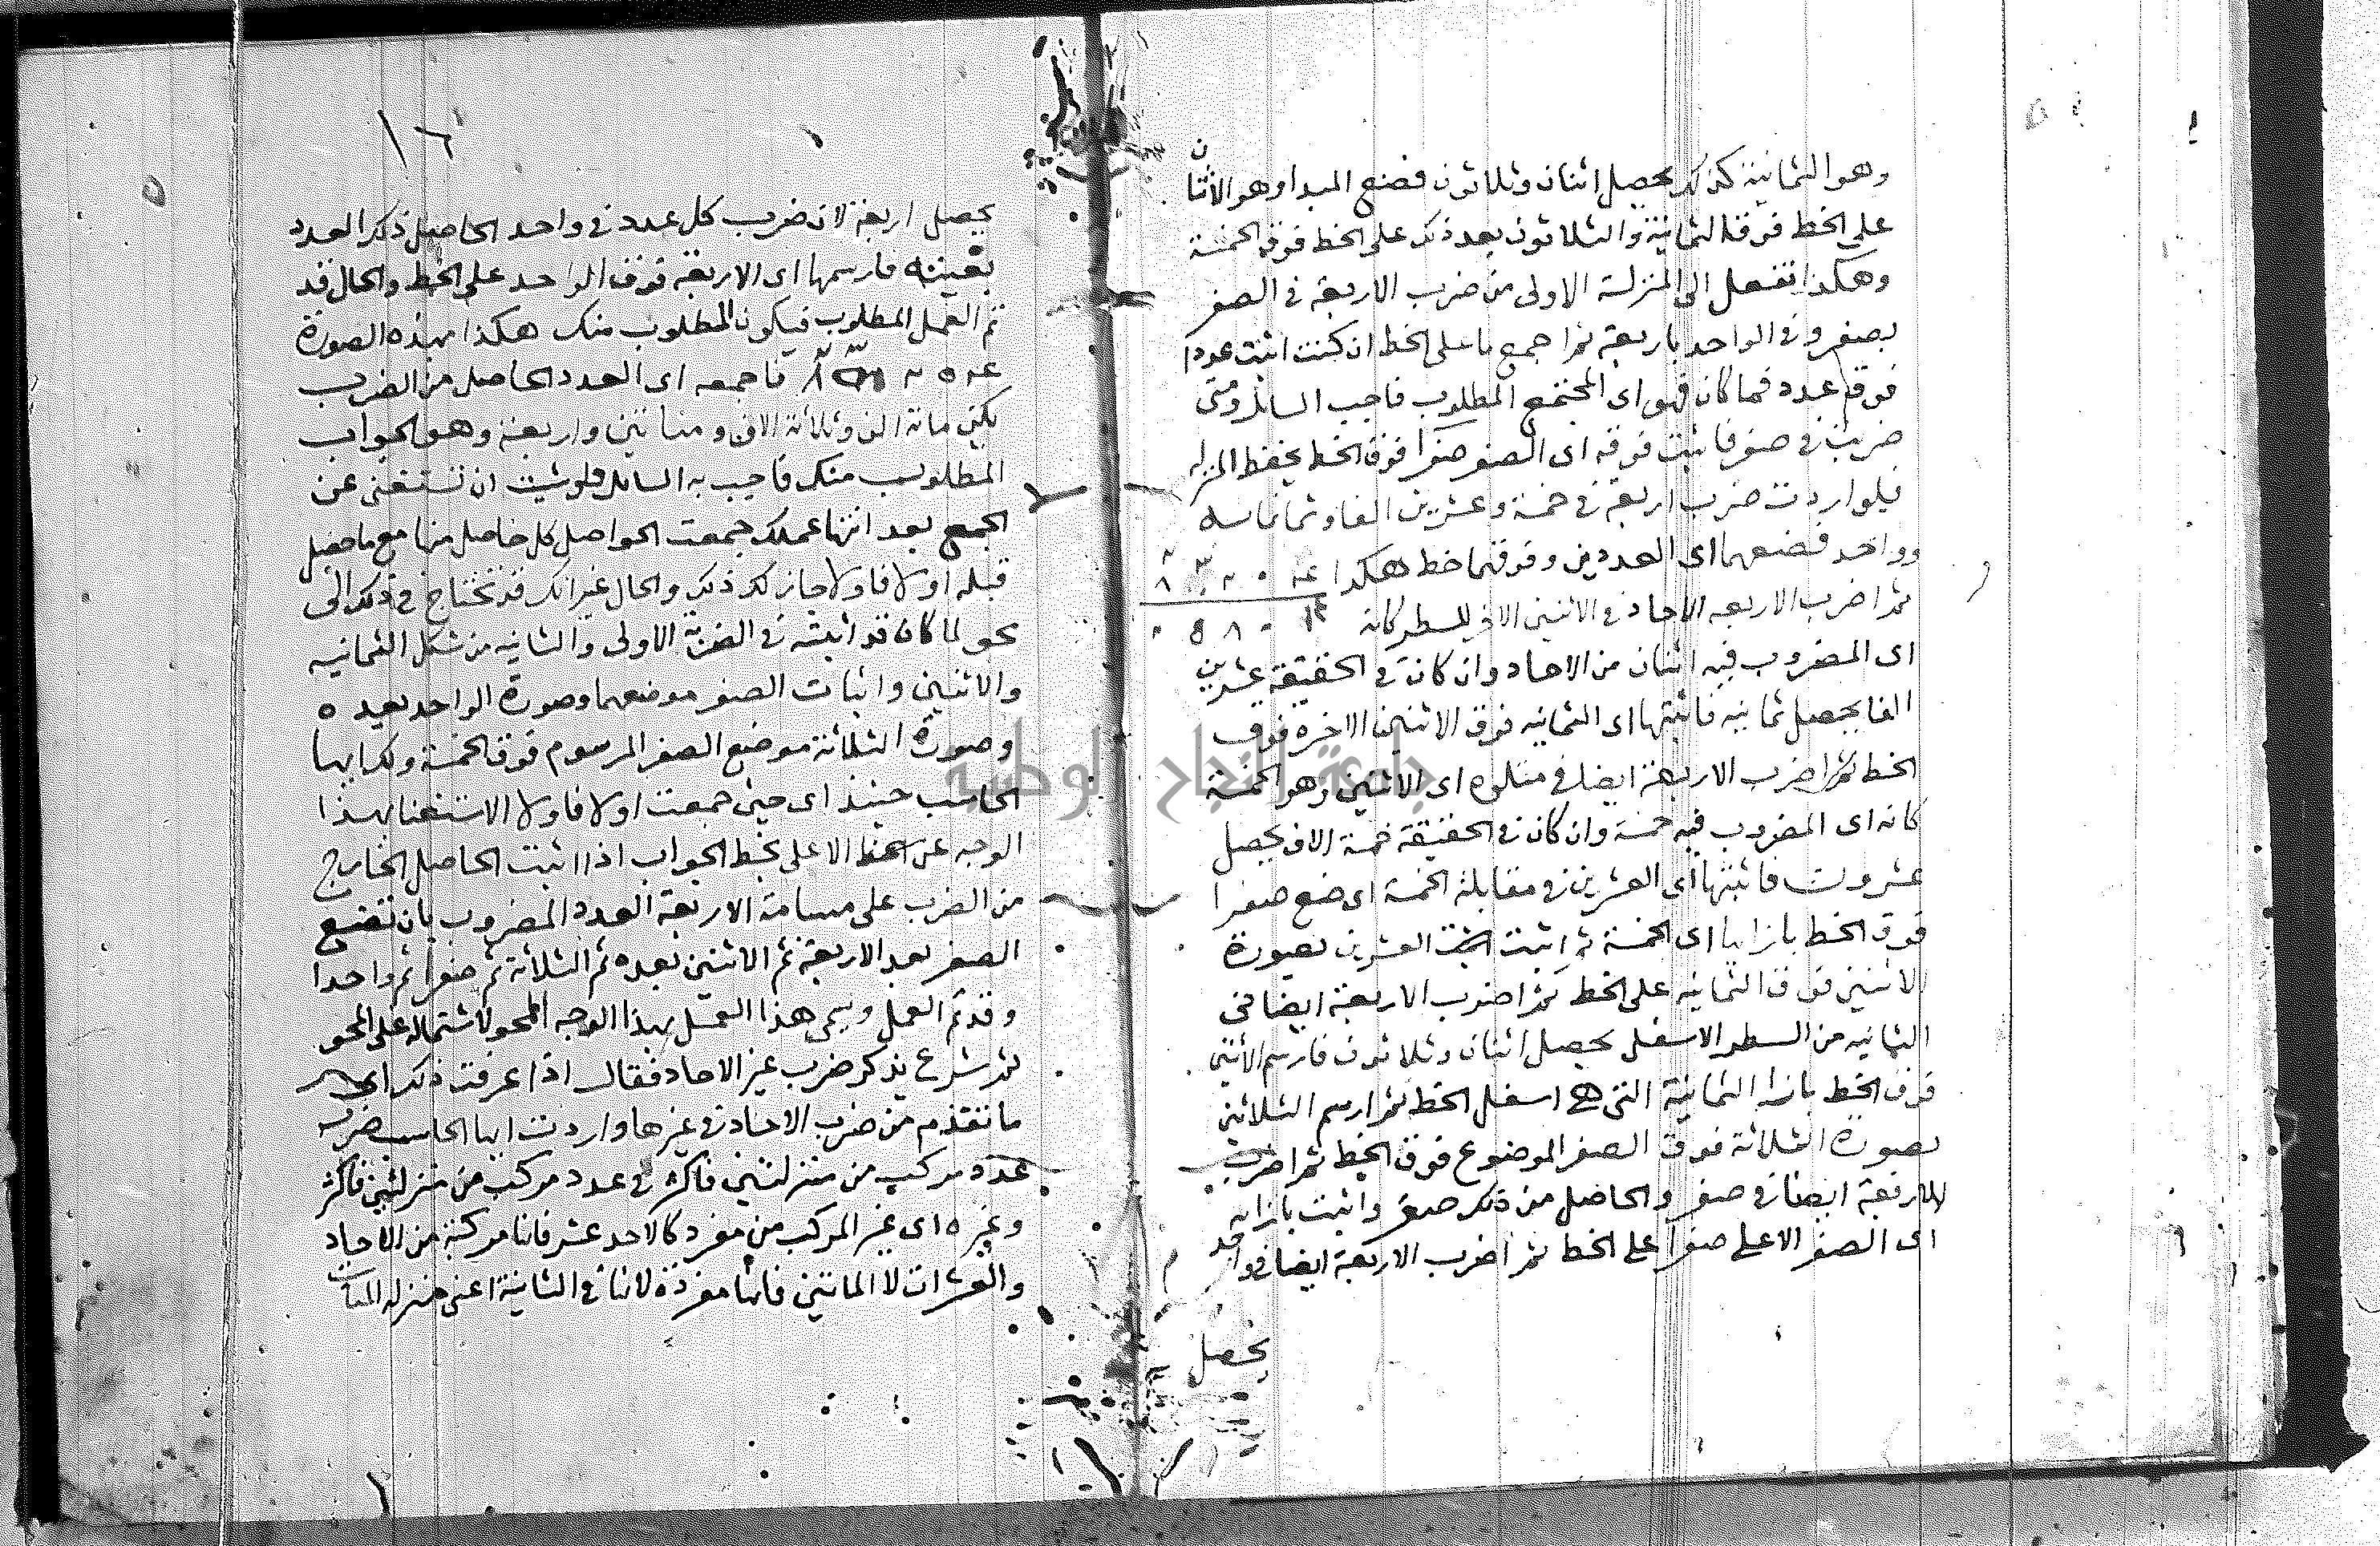 وهو الثمانية كذلك يحصل اثنان وثلاثون فضع المبدا وهو الاثنان
على الخط فوق الثمانية والثلاثون بعد ذلك على الخط فوق الخمسة
وهكذا تفعل الى المنزلة الاولى من ضرب الاربعة في الصفر
بصفر وفي الواحد باربعة ثم اجمع ما على الخط ان كنت اثبت عددا
فوقه عدد فما كان فهو اى المجتمع المطلوب فاجب السائل ومتى
ضربت في صفر فاثبت فوقه اى الصفر صفرا فوق الخط يحفظ المنزله
فلو اردت ضرب اربعة في خمسة وعشرين الفا وثمانمايه
وواحد فضعهما اى العددين وفوقهما خط هكذا
ثم اضرب الاربعه الاحاد في الاثنين الاخر للسطر كانه
اى المضروب فيه اثنان من الاحاد وان كانت في الحقيقة عشرين
الفا يحصل ثمانيه فاثبتها اى الثمانيه فوق الاثنين الاخره فوق
الخط ثم اضرب الاربعة ايضا في متلوه اى الاثنين وهو الخمسة
كانه اى المضروب فيه خمسة وان كان في الحقيقة خمسة الاف يحصل
عشرون فاثبتها اى العشرين في مقابلة الخمسة اى ضع صفرا
فوق الخط بازايها اى الخمسة ثم اثبت العشرين بصورة
الاثنين فوق الثمانيه على الخط ثم اضرب الاربعة ايضا في
الثمانيه من السطر الاسفل يحصل اثنان وثلاثون فارسم الاثنين
فوق الخط بازا الثمانية التى هي اسفل الخط ثم ارسم الثلاثين
بصورة الثلاثة فوق الصفر الموضوع فوق الخط ثم اضرب
الاربعة ايضا في صفر والحاصل من ذلك صفر واثبت بازايه
اى الصفر الاعلى صفرا على الخط ثم اضرب الاربعة ايضا في واحد
يحصل
١٦
يحصل اربعة لان ضرب كل عدد في واحد الحاصل ذلك العدد
بعينه فارسمها اى الاربعة فوق الواحد على الخط والحال قد
تم العمل المطلوب فيكون المطلوب منك هكذا بهذه الصورة
فاجمعه اى العدد الحاصل من الضرب
يكن مائة الف وثلاثة الاف ومئاتين واربعة وهو الجواب
المطلوب منك فاجب به السائل فلو شيت ان تستغنى عن
الجمع بعد انتها عملك جمعت الحواصل كل حاصل منها مع ما حصل
قبله اولا فاولا جاز لك ذلك والحال غير انك قد تحتاج في ذلك الى
محو لما كان قد اثبته في الضربة الاولى والثانيه من شكل الثمانيه
والاثنين واثبات الصفر موضعهما وصورة الواحد بعيده
وصورة الثلاثة موضع الصفر المرسوم فوق الخمسة ولك ايها
الحاسب حينئذ اى حين جمعت اولا فاولا الاستغنا بهذا
الوجه عن الخط الاعلى بخط الجواب اذا اثبت الحاصل الخارج
من الضرب على مسامتة الاربعة العدد المضروب بان تضع
الصفر بعد الاربعة ثم الاثنين بعده ثم الثلاثة ثم صفرا ثم واحدا
وقد تم العمل ويسمى هذا العمل بهذا الوجه المحو لاشتماله على المحو
ثم شرع يذكر ضرب غير الاحاد فقال اذا عرفت ذلك اى
ما تقدم من ضرب الاحاد في غيرها واردت ايها الحاسب ضرب
عدد مركب من منزلتين فاكثر في عدد مركب من منزلتين فاكثر
وغيره اى غير المركب من مفرد كالاحد عشر فانها مركبة من الاحاد
والعشرات لا المائتين فانها مفردة لانها في الثانية اعنى منزله المئات
جامعة النجاح الوطنية